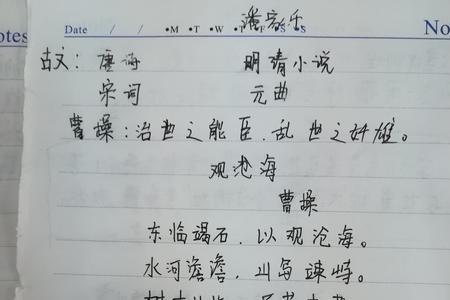 潘宗乐
otes Date / / •M •T •W •T •F •S •S No
古文：唐诲 明清小说
宋词 元曲
曹操：治世之能臣，乱世之奸雄。
观沧海
曹操
东临竭石，以观沧海。
水河澹澹，山岛竦峙。